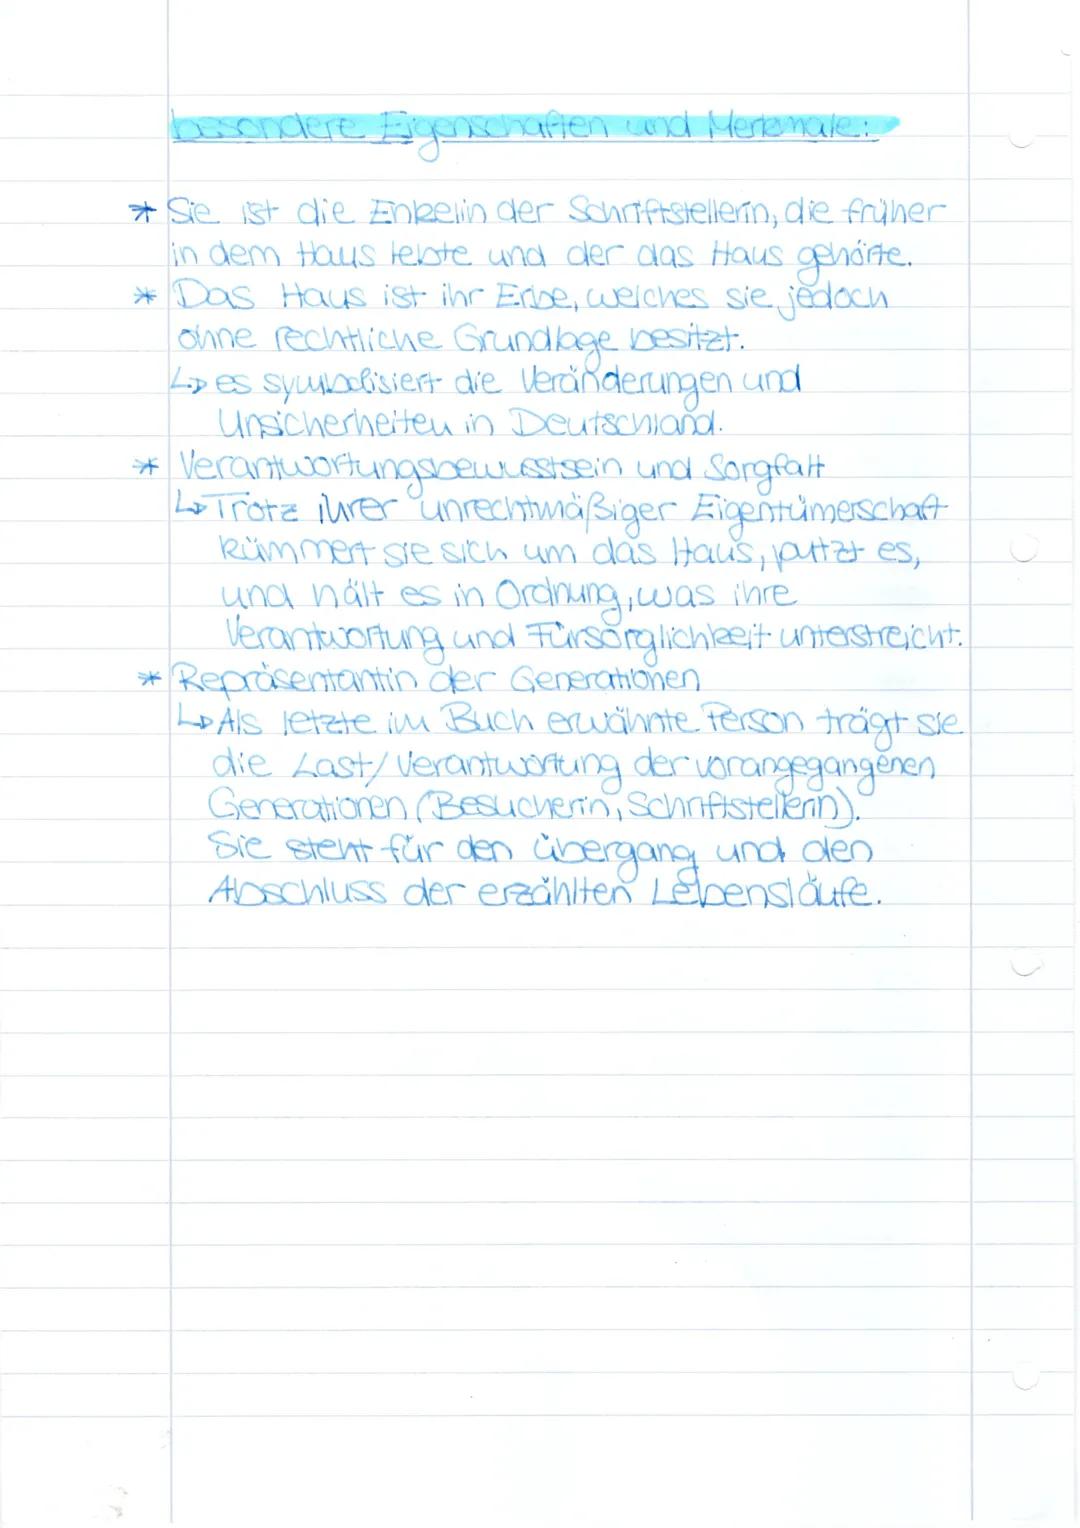 besondere Eigenschaften und Merkmale:
* Sie ist die Enkelin der Schriftstellerin, die früher
in dem Haus lebte und der das Haus gehörte.
* Das Haus ist ihr Erbe, welches sie jedoch
ohne rechtliche Grundlage besitzt.
↳ es symbolisiert die Veränderungen und
Unsicherheiten in Deutschland.
* Verantwortungsbewusstsein und Sorgfalt
↳ Trotz ihrer unrechtmäßiger Eigentümerschaft
kümmert sie sich um das Haus, putzt es,
und hält es in Ordnung, was ihre
Verantwortung und Fürsorglichkeit unterstreicht.
* Repräsentantin der Generationen
↳ Als letzte im Buch erwähnte Person trägt sie
die Last/Verantwortung der vorangegangenen
Generationen (Besucherin, Schriftstellerin).
Sie steht für den übergang und den
Abschluss der erzählten Lebensläufe.